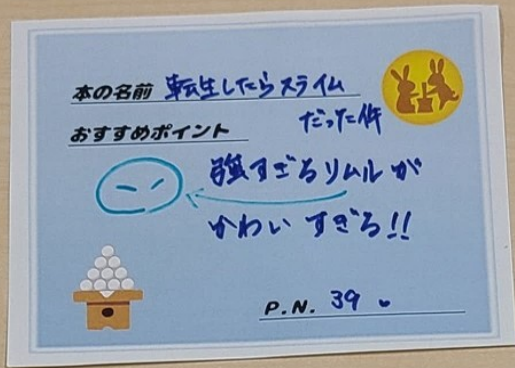 本の名前 転生したらスライム
だった件
おすすめポイント
強すぎるリムルが
かわいすぎる!!
P.N. 39